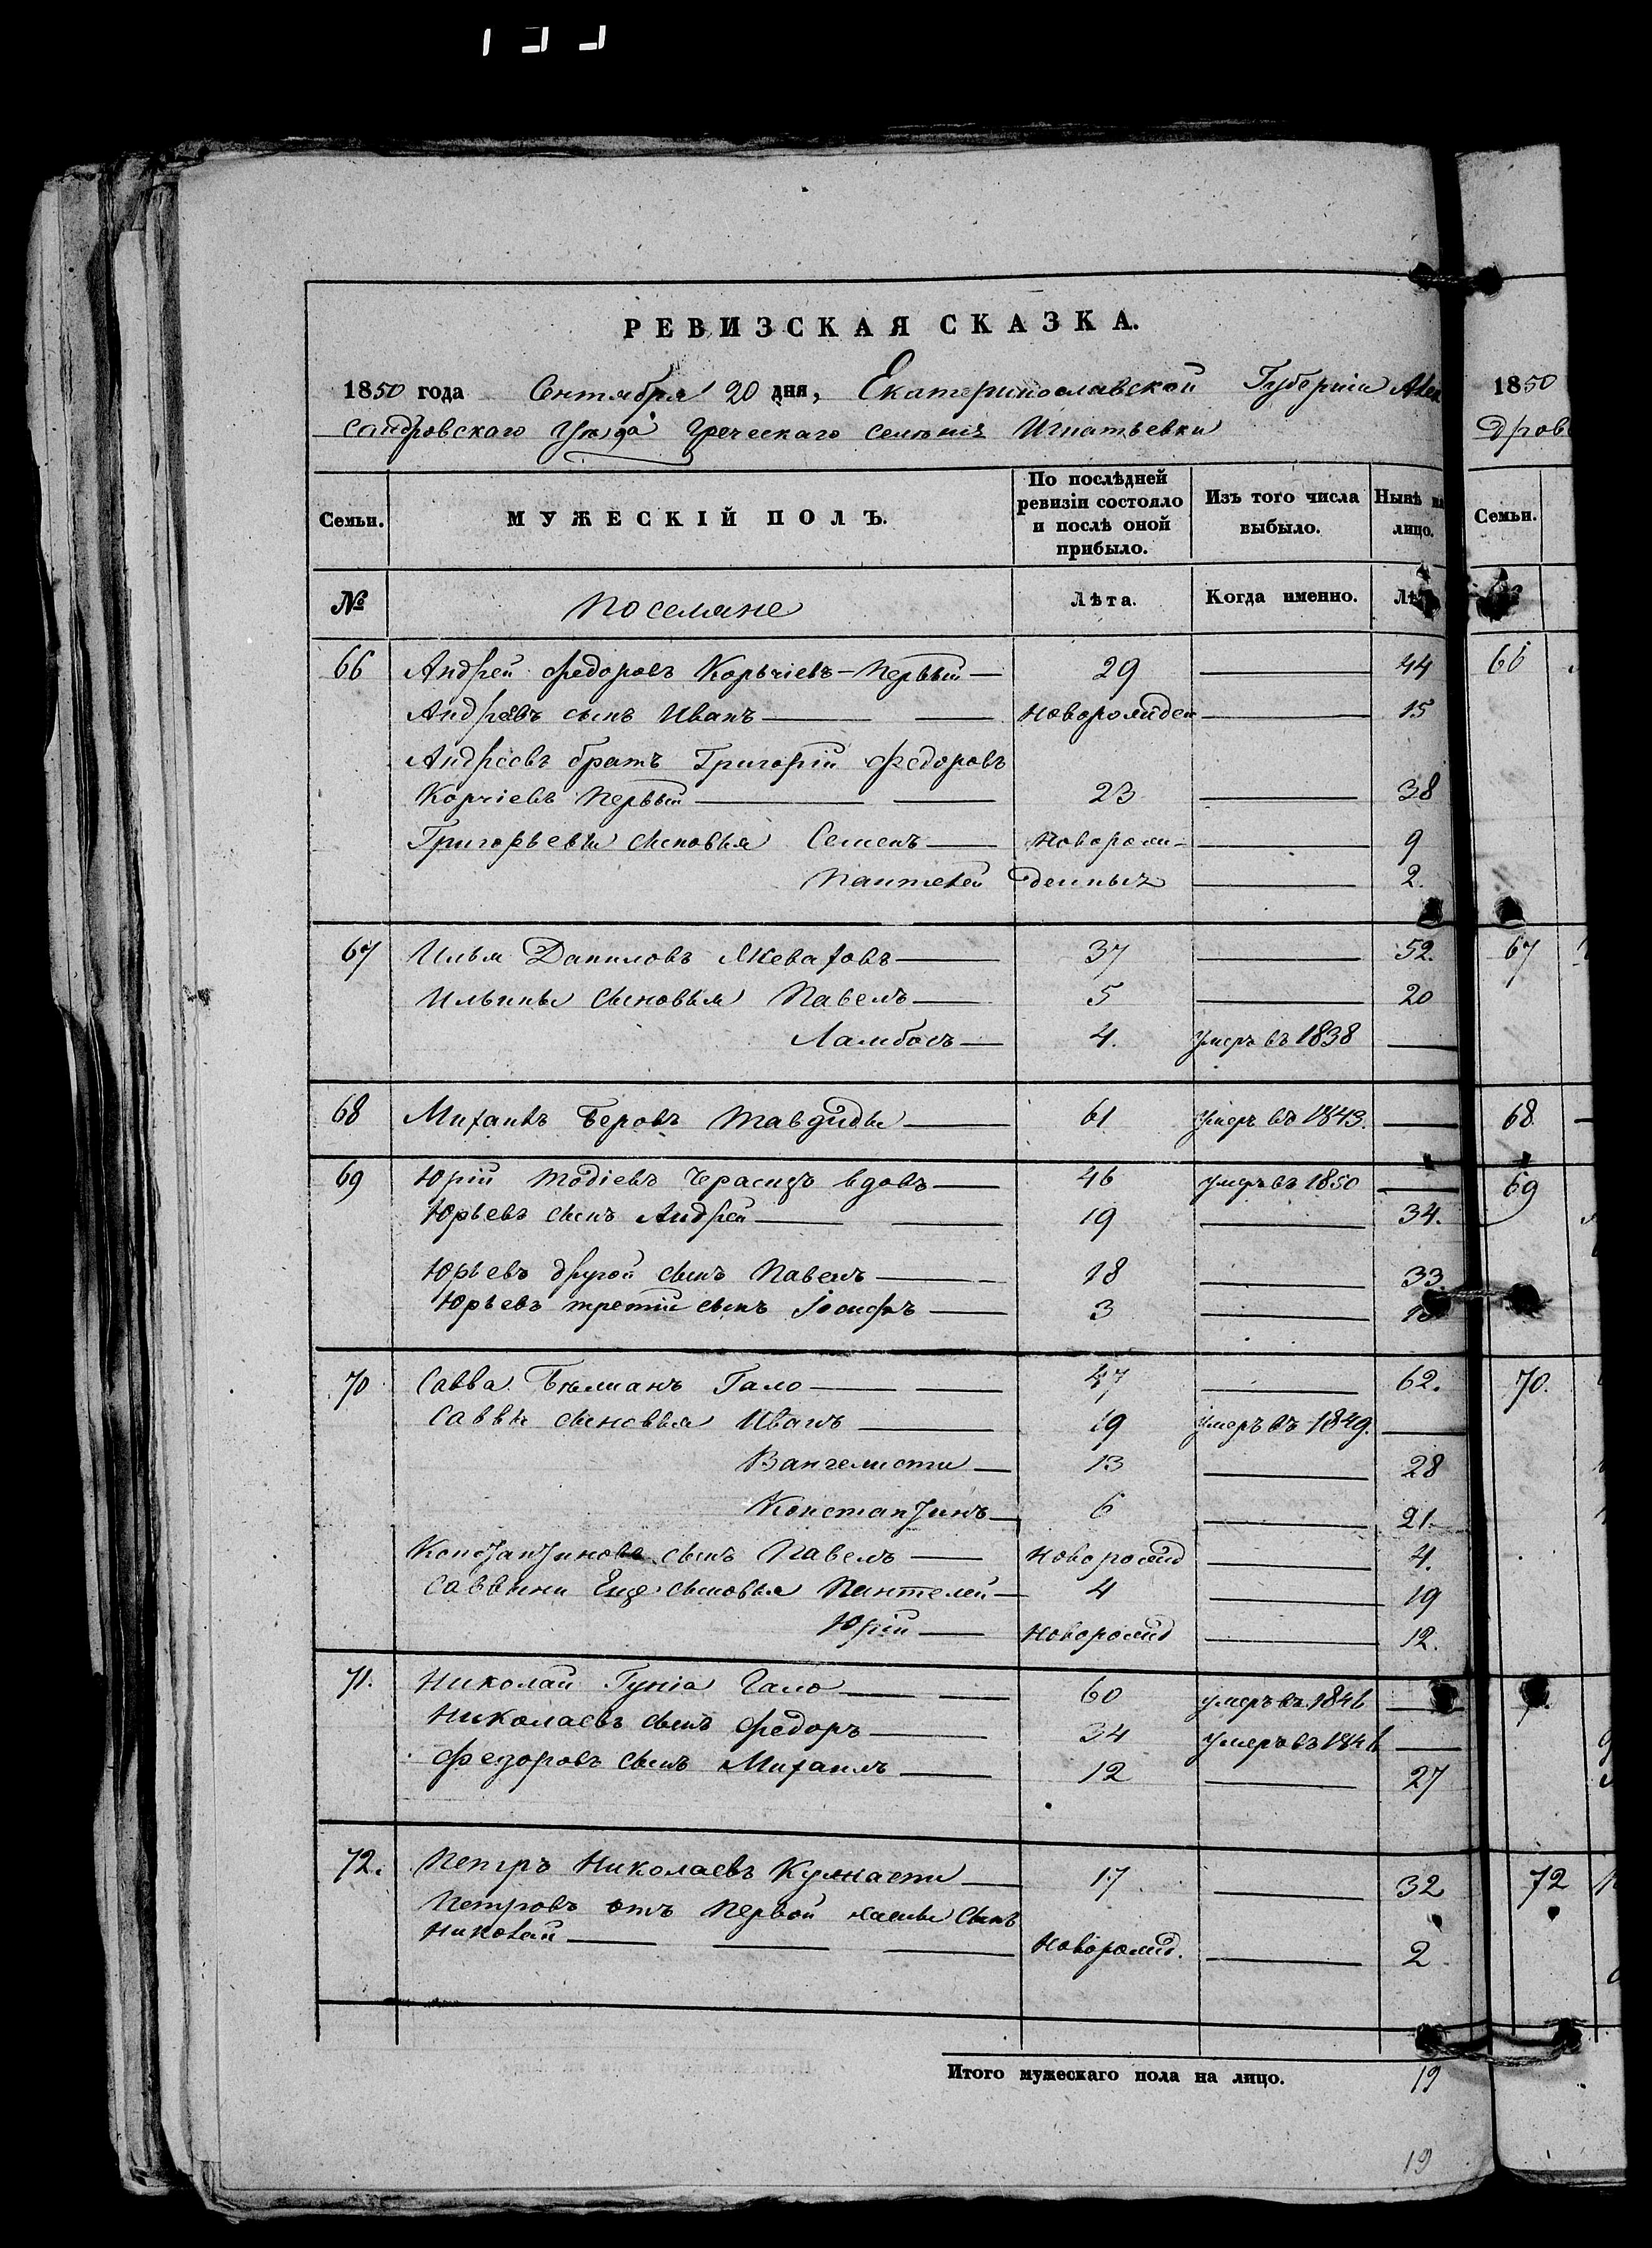 РЕВИЗСКАЯ СКАЗКА.
1850 года Сентября 20 дня, Екатеринославской Губерніи Алек
сандровскаго Уѣзда Греческаго селенія Игнатьевки
Семьи. МУЖЕСКІЙ ПОЛЪ. По послѣдней ревизіи состояло и послѣ оной прибыло. Изъ того числа выбыло. Нынѣ на лицо.
№ Поселяне Лѣта. Когда именно. Лѣ
66 Андрей Федоровъ Корьчіевъ-Первый 29 44
Андреевъ сынъ Иванъ Новорожден 15
Андреевъ братъ Григорій Федоровъ
Корчіевъ Первый 23 38
Григорьевы сыновья Семенъ Новорож- 9
Пантелей денныхъ 2.
67 Илья Даниловъ 37 52.
Ильины сыновья Павелъ 5 20
Ламбосъ 4. Умеръ въ 1838
68 Михаилъ Беровъ 61 Умеръ въ 1843.
69 Юрій Тодіевъ вдовъ 46 умеръ въ 1850
Юрьевъ сынъ Андрей 19 34.
Юрьевъ другой сынъ Павелъ 18 33
Юрьевъ третій сынъ Іосифъ 3
70 Савва Гало 47 62.
Саввы сыновья Иванъ 19 Умеръ въ 1849.
Вангелисти 13 28
Константинъ 6 21.
Константиновъ сынъ Павелъ Новорожд 4.
Саввини Еще сыновья Пантелей 4 19
Юрій Новорожд 12.
71. Николай Гунія Гало 60 умеръ въ 1846
Николаевъ сынъ Федоръ 34 умеръ въ 1846
Федоровъ сынъ Михаилъ 12 27
72. Петръ Николаевъ 17 32
Петровъ отъ Первой жены Сынъ
Николай Новорожд. 2
Итого мужескаго пола на лицо. 19
19
1850
дров
Семьи.
66
67
68
69
70.
72